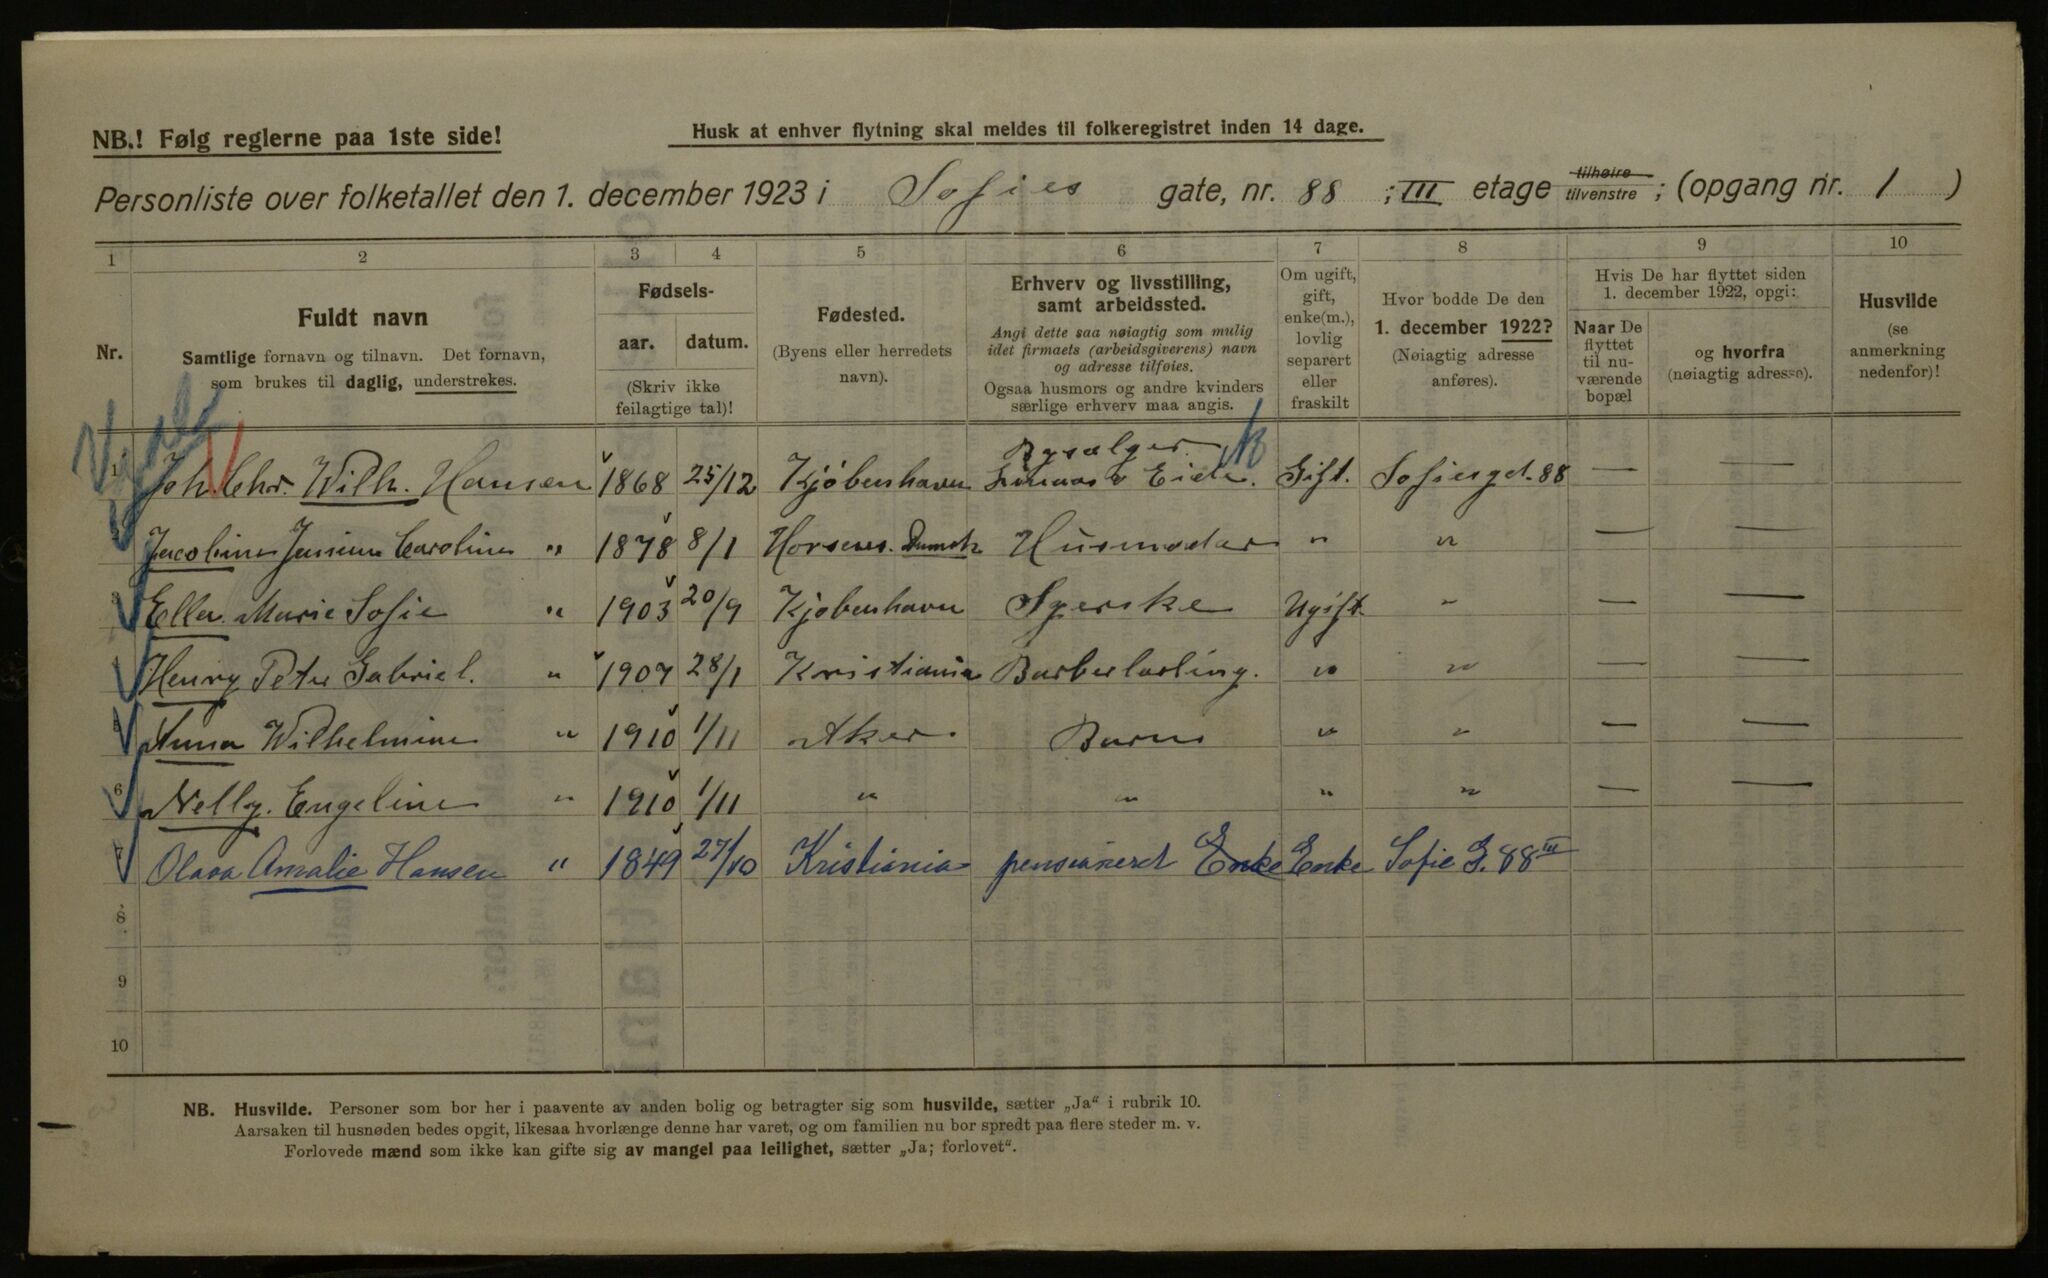 NB.! Følg reglerne paa 1ste side!
Husk at enhver flytning skal meldes til folkeregistret inden 14 dage.
Personliste over folketallet den 1. december 1923 i Sofies gate, nr. 88 ; III etage tilhøire tilvenstre ; (opgang nr. 1 )
1 2 3 4 5 6 7 8 9 10
Nr.
Fuldt navn
Samtlige fornavn og tilnavn. Det fornavn,
som brukes til daglig, understrekes.
Fødsels-
aar. datum.
(Skriv ikke
feilagtige tal)!
Fødested.
(Byens eller herredets
navn).
Erhverv og livsstilling,
samt arbeidssted.
Angi dette saa nøiagtig som mulig
idet firmaets (arbeidsgiverens) navn
og adresse tilføies.
Ogsaa husmors og andre kvinders
særlige erhverv maa angis.
Om ugift,
gift,
enke(m.),
lovlig
separert
eller
fraskilt
Hvor bodde De den
1. december 1922?
(Nøiagtig adresse
anføres).
Hvis De har flyttet siden
1. december 1922, opgi:
Naar De
flyttet
til nu-
værende
bopæl
og hvorfra
(nøiagtig adresse).
Husvilde
(se
anmerkning
nedenfor)!
Bysælger
1 Joh. Chr. Wilh. Hansen 1868 25/12 Kjøbenhavn Eide. Gift. Sofiesgd. 88 — —
2 Jacobine Caroline " 1878 8/1 Horsens. Danmk Husmoder " " — —
3 Ella Marie Sofie " 1903 20/9 Kjøbenhavn Syerske Ugift " — —
Henry Peter Gabriel. " 1907 28/1 Kristiania Barberlærling. " " — —
5 Anna Wilhelmine " 1910 1/11 Aker Barn " " — —
6 Nelly. Engeline " 1910 1/11 " " " " — —
7 Olava Amalie Hansen " 1849 27/10 Kristiania pensioneret Enke Enke Sofie G. 88 III
8
9
10
NB. Husvilde. Personer som bor her i paavente av anden bolig og betragter sig som husvilde, sætter „Ja“ i rubrik 10.
Aarsaken til husnøden bedes opgit, likesaa hvorlænge denne har varet, og om familien nu bor spredt paa flere steder m. v.
Forlovede mænd som ikke kan gifte sig av mangel paa leilighet, sætter „Ja; forlovet“.